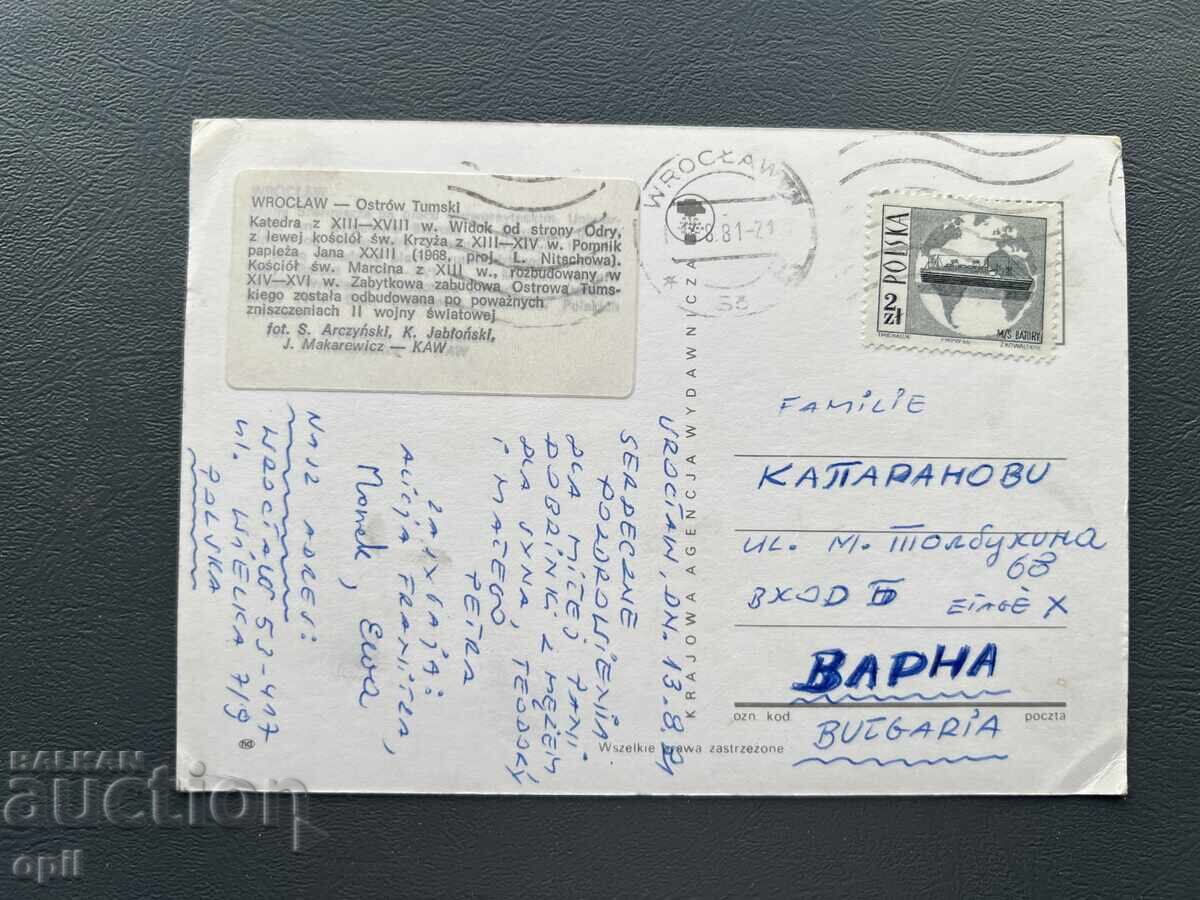 WROCŁAW — Ostrów Tumski
Katedra z XIII—XVIII w. Widok od strony Odry,
z lewej kościół św. Krzyża z XIII—XIV w. Pomnik
papieża Jana XXIII (1968, proj. L. Nitschowa).
Kościół św. Marcina z XIII w., rozbudowany w
XIV—XVI w. Zabytkowa zabudowa Ostrowa Tums-
kiego została odbudowana po poważnych
zniszczeniach II wojny światowej
fot. S. Arczyński, K. Jabłoński,
J. Makarewicz — KAW
WROCŁAW
8.81-21
POLSKA
2 zł
M/S BATORY
KRAJOWA AGENCJA WYDAWNICZA
WROCŁAW, DN. 13.8.81
SERDECZNE
POZDROWIENIA
DLA MIŁEJ PANI
DOBRINKI Z MĘŻEM
DLA SYNA, TEODORY
I MAŁEGO
PETRA
ALICJA FRANITZA,
Marek, Ewa
NASZ ADRES:
WROCŁAW 53-417
UL. WIELKA 7/9
POLSKA
FAMILIE
КАПАРАНОВИ
UL. М. Толбухина
68
ВХОД Б ETAGE X
ВАРНА
BUŁGARIA
ozn. kod
poczta
Wszelkie prawa zastrzeżone
BALKAN
auction
opil